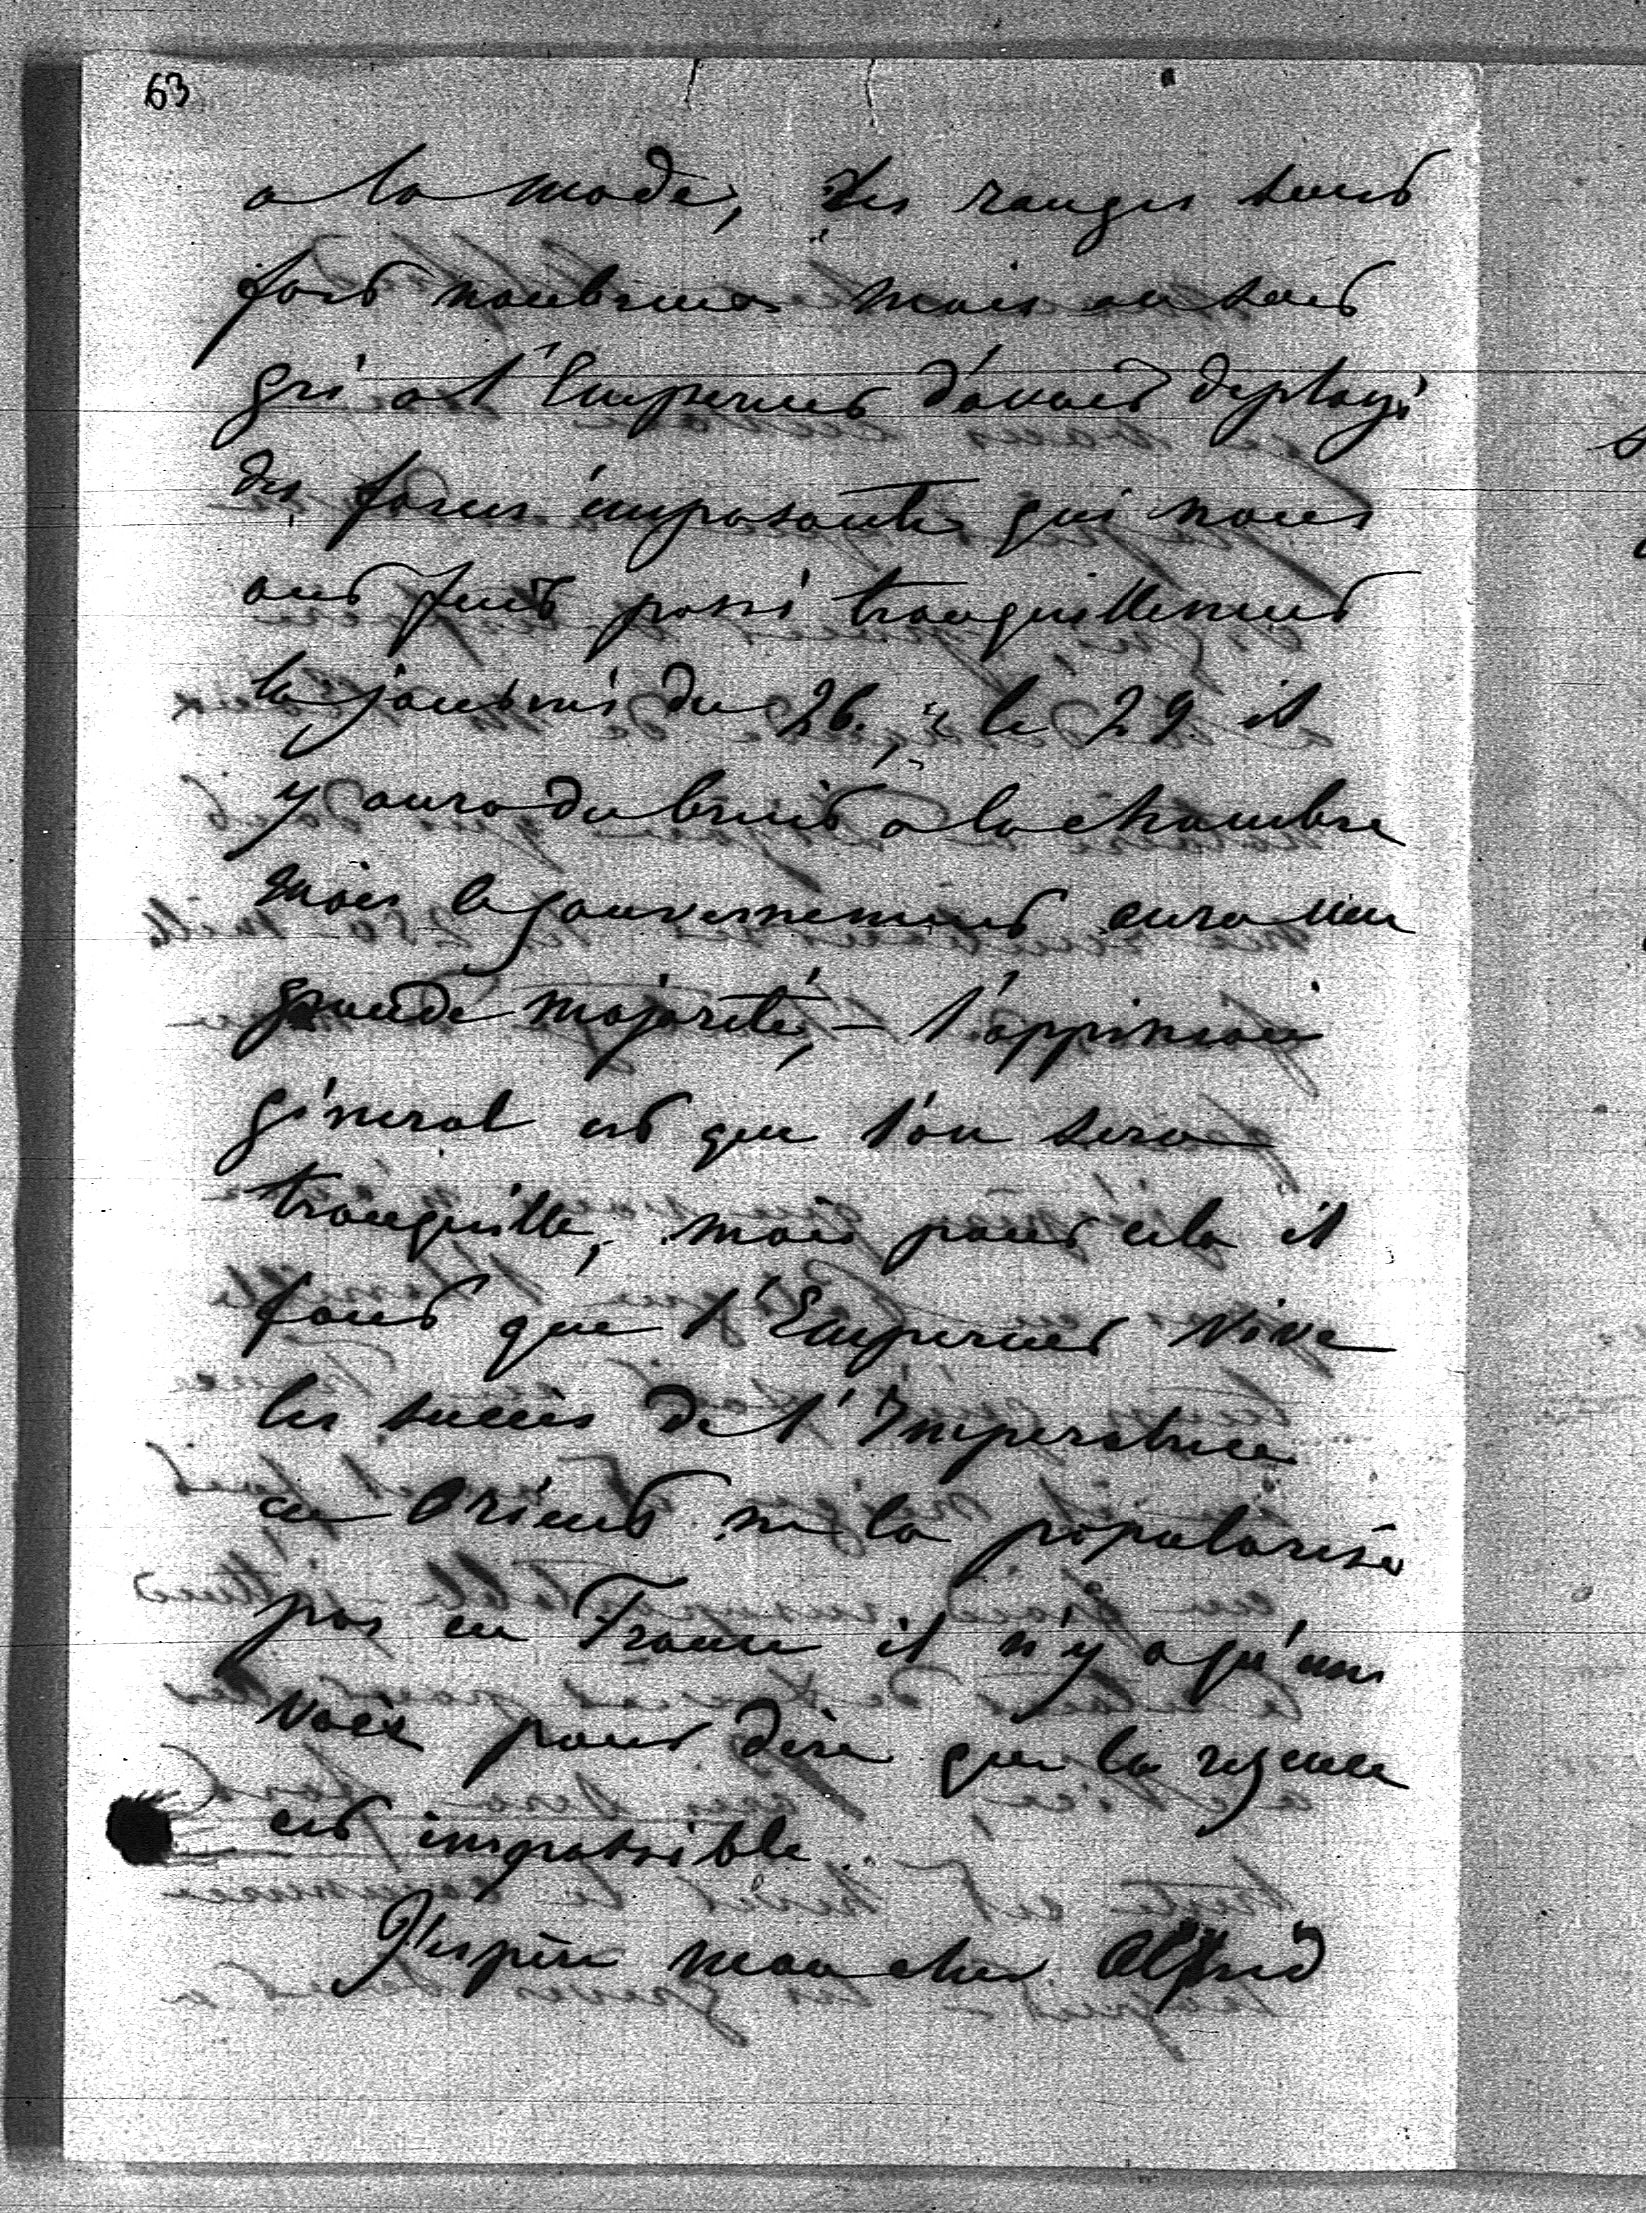 63
a la mode, les rouges sont
fort nombreux mais on sait
gré a l'Empereur d'avoir deployé
des forces imposantes qui nous
ont fait passé tranquillement
la journée du 26, le 29 il
y aura du bruit a la chambre
mais le gouvernement aura une
grande majorité, – l'oppinion
géneral est que l'on sera
tranquille, mais pour cela il
faut que l'Empereur vive
les succès de l'Imperatrice
en Orient ne la popularise
pas en France il n'y a qu'une
voix pour dire que la regence
est impossible.
J'espère mon cher Alfred